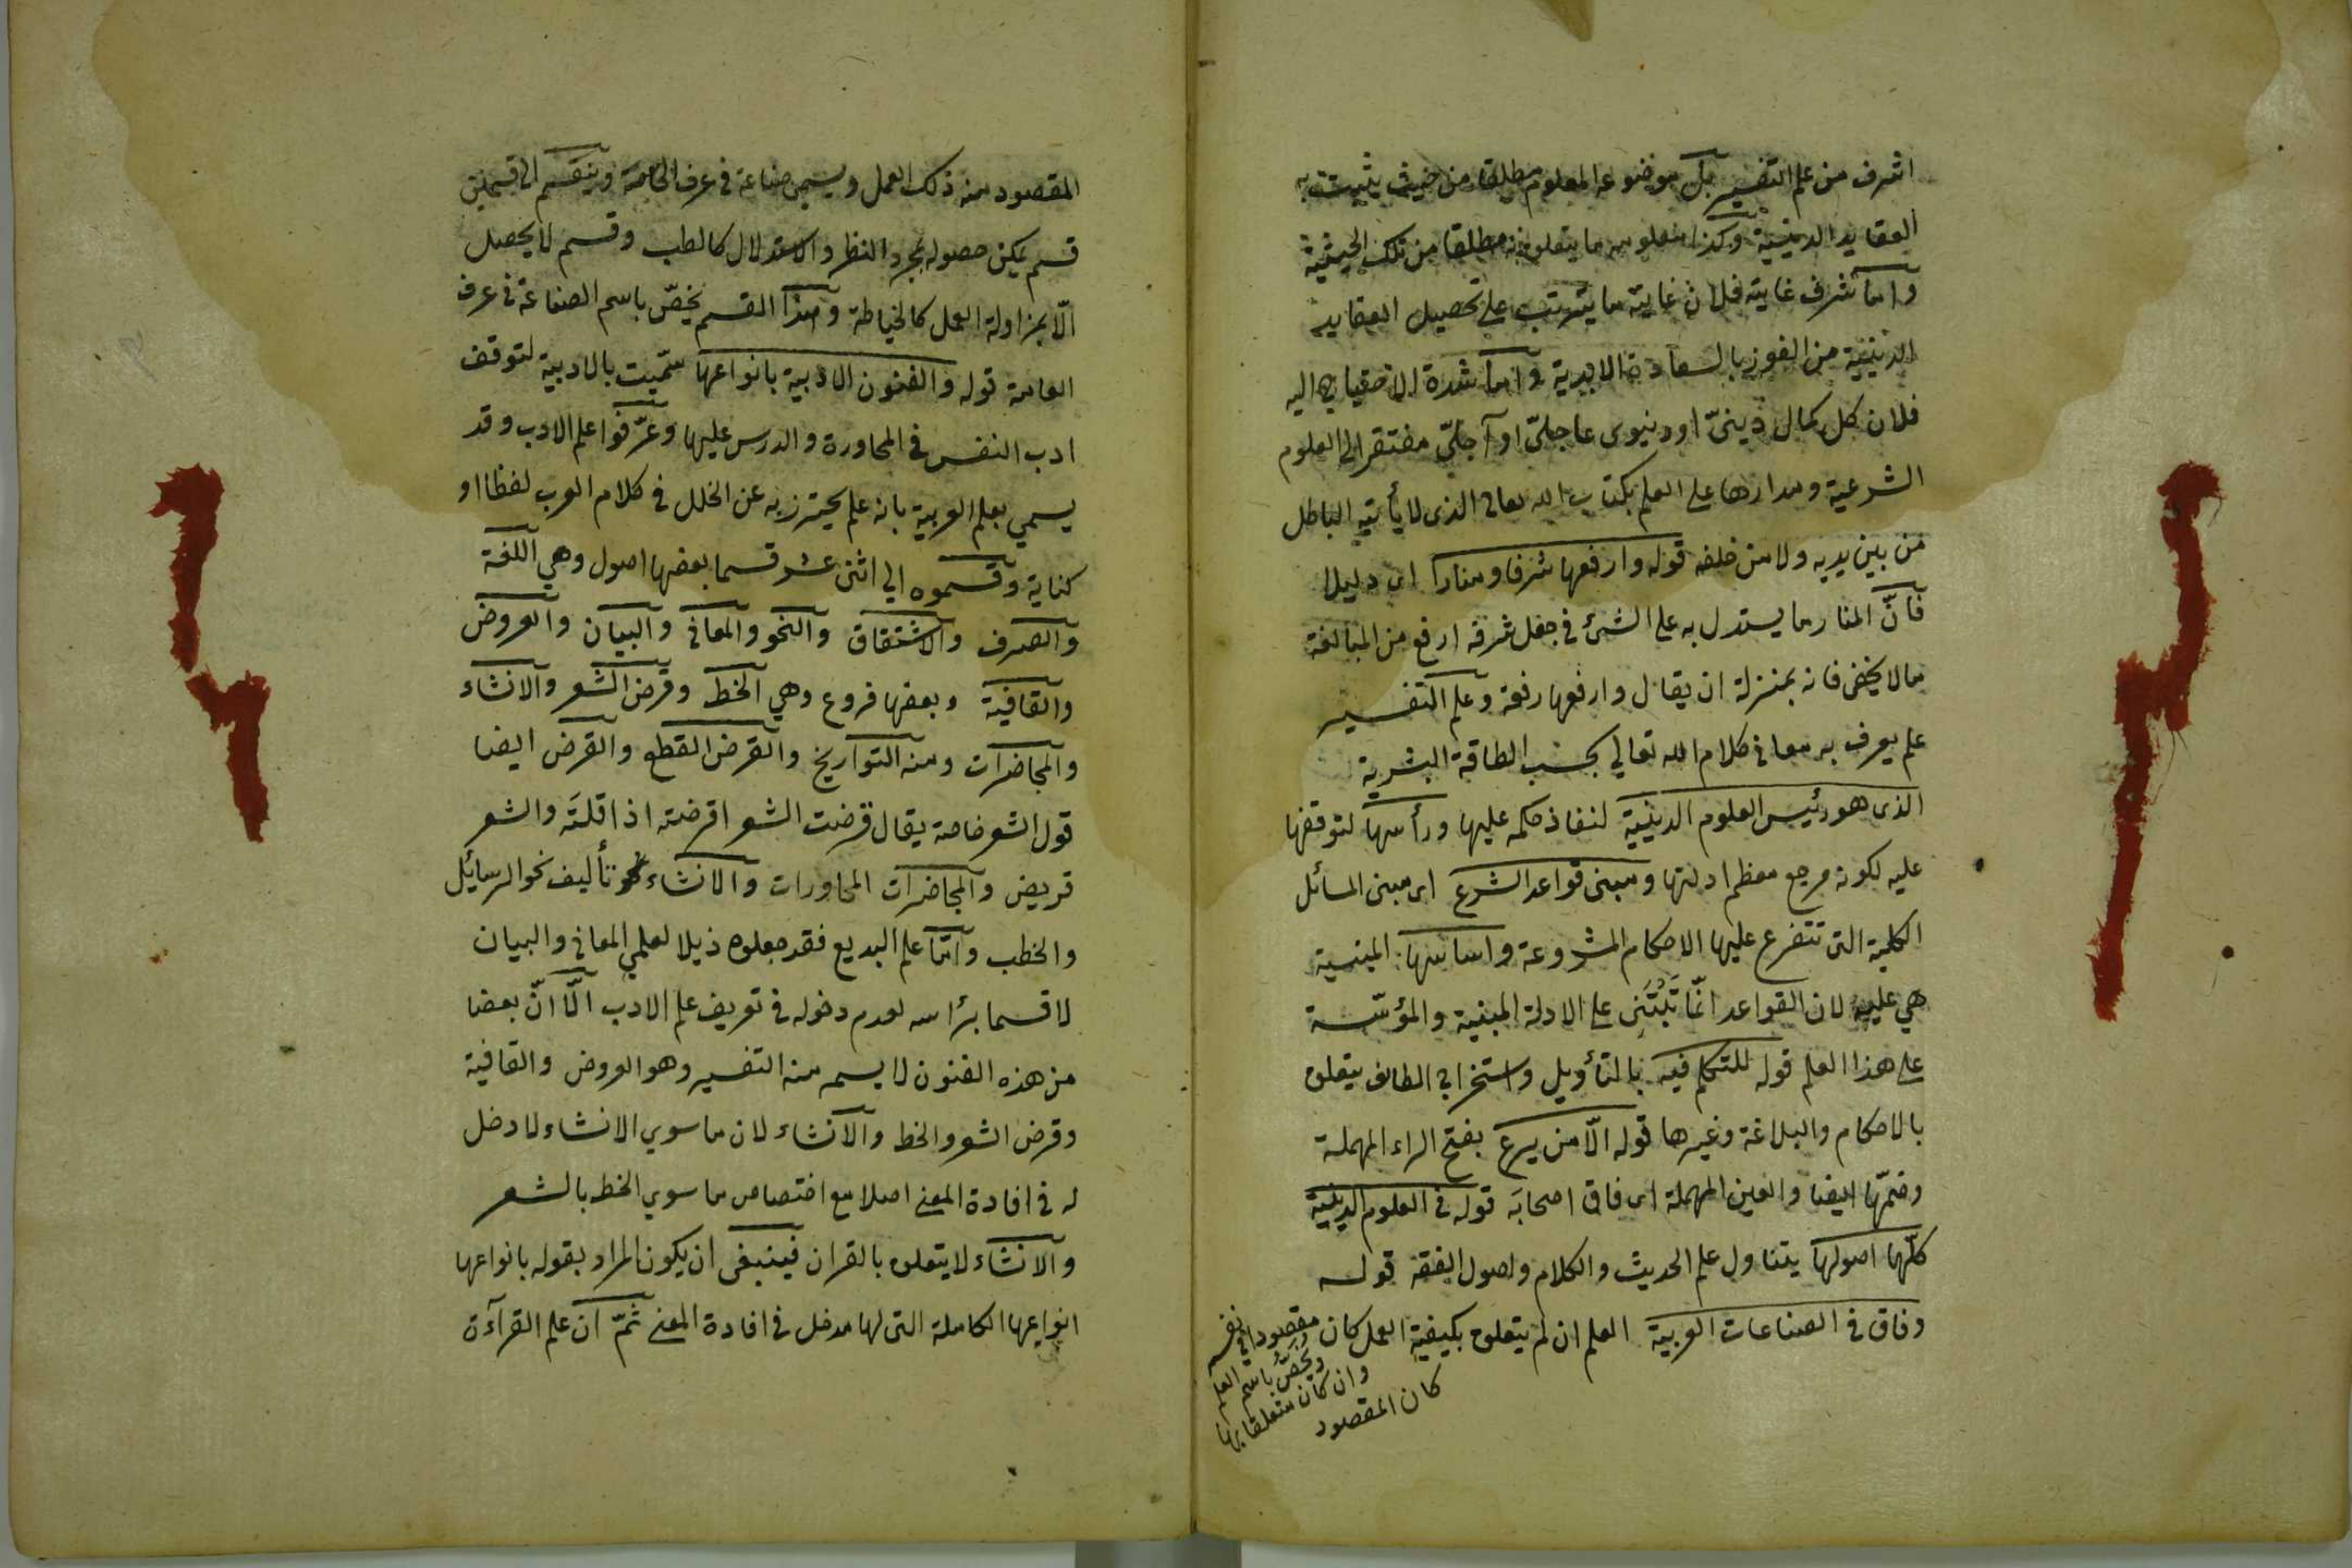 اشرف من علم التفسير بل موضوعه المعلوم مطلقا من حيث يثبت به
العقايد الدينية وكذا معلومه ما يتعلق به مطلقا من تلك الحيثية
واما شرف غايته فلان غايته ما يترتب على تحصيل العقايد
الدينية من الفوز بالسعادة الابدية واما شدة الاحتياج اليه
فلان كل كمال دينىّ او دنيوى عاجلىّ او آجلىّ مفتقر الى العلوم
الشرعية ومدارها على العلم بكتاب الله تعالى الذى لا يأتيه الباطل
من بين يديه ولا من خلفه قوله وارفعها شرفا ومنارا اى دليلا
فانّ المنار ما يستدل به على الشئ فى جعل شرفه ارفع من المبالغة
ما لا يخفى فانه بمنزلة ان يقال وارفعها رفعة وعلم التفسير
علم يعرف به معانى كلام الله تعالي بحسب الطاقة البشرية
الذى هو رئيس العلوم الدينية لنفاذ حكمه عليها ورأسها لتوقفها
عليه لكونه مرجع معظم ادلتها ومبنى قواعد الشرع اى مبنى المسائل
الكلية التى تتفرع عليها الاحكام المشروعة واساسها المبنية
هي عليه لان القواعد انّما تبتنى على الادلة المبنية والمؤسّسة
على هذا العلم قوله للتكلم فيه بالتأويل واستخراج لطائف يتعلق
بالاحكام والبلاغة وغيرها قوله الّا من يرع بفتح الراء المهملة
وضمّها ايضا والعين المهملة اى فاق اصحابه قوله فى العلوم الدينية
كلّها اصولها يتناول علم الحديث والكلام واصول الفقه قوله
وفاق فى الصناعات العربية العلم ان لم يتعلق بكيفية العمل كان مقصودا فى نفسه
ويخصّ باسم العلم
وان كان متعلقا بها
كان المقصود
المقصود منه ذلك العمل ويسمى صناعة فى عرف الخاصة وينقسم الى قسمين
قسم يمكن حصوله بمجرد النظر والاستدلال كالطب وقسم لا يحصل
الّا بمزاولة العمل كالخياطة وهذا القسم يخصّ باسم الصناعة فى عرف
العامة قوله والفنون الادبية بانواعها سمّيت بالادبية لتوقف
ادب النفس فى المحاورة والدرس عليها وعرّفوا علم الادب وقد
يسمي بعلم العربية بانه علم يحترز به عن الخلل فى كلام العرب لفظا او
كتابة وقسموه الي اثنى عشر قسما بعضها اصول وهي اللغة
والصرف والاشتقاق والنحو والمعانى والبيان والعروض
والقافية وبعضها فروع وهي الخط وقرض الشعر والانشاء
والمحاضرات ومنه التواريخ والقرض القطع والقرض ايضا
قول الشعر خاصة يقال قرضت الشعر اقرضته اذا قلته والشعر
قريض والمحاضرات المحاورات والانشاء هو تأليف نحو الرسايل
والخطب وامّا علم البديع فقد جعلوه ذيلا لعلمي المعانى والبيان
لا قسما برأسه لعدم دخوله فى تعريف علم الادب الّا انّ بعضا
من هذه الفنون لا يستمد منه التفسير وهو العروض والقافية
وقرض الشعر والخط والانشاء لان ما سوي الانشاء لا دخل
له فى افادة المعنى اصلا مع اختصاص ما سوي الخط بالشعر
والانشاء لا يتعلق بالقران فينبغى ان يكون المراد بقوله بانواعها
انواعها الكاملة التى لها مدخل فى افادة المعنى ثمّ ان علم القرآءة